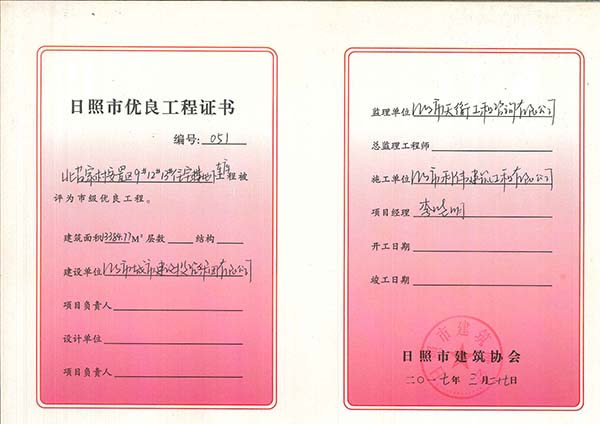 日照市优良工程证书
编号: 051
北苗家村安置区9#12#13#住宅楼地下车库工程被
评为市级优良工程。
建筑面积13384.77M²层数 结构
建设单位 日照市城市建设投资集团有限公司
项目负责人
设计单位
项目负责人
监理单位 日照市天衡工程咨询有限公司
总监理工程师
施工单位 日照市利伟建筑工程有限公司
项目经理 李晓明
开工日期
竣工日期
日照市建筑协会
二〇一七年三月二十七日